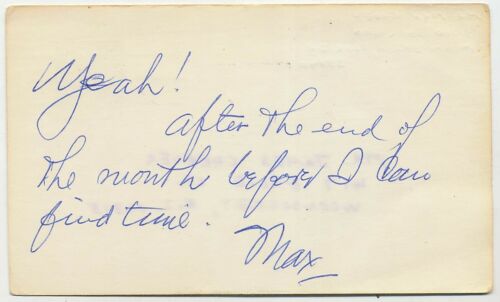 Yeah!
after the end of
the month before I can
find time.
Max